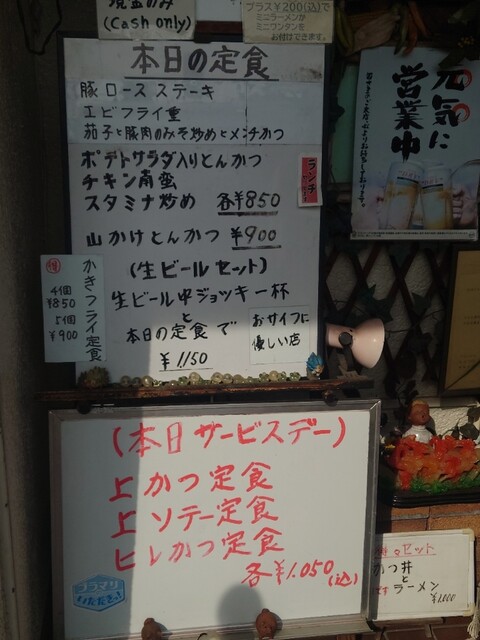 現金のみ
(Cash only)
プラス¥200(込)で
ミニラーメンか
ミニワンタンを
お付けできます。
本日の定食
豚ロースステーキ
エビフライ重
茄子と豚肉のみそ炒めとメンチかつ
ポテトサラダ入りとんかつ
チキン南蛮
スタミナ炒め 各¥850
ランチ
山かけとんかつ ¥900
(生ビールセット)
生ビール中ジョッキ一杯
と
本日の定食で
¥1150
おサイフに
優しい店
かきフライ定食
4個
¥850
5個
¥900
元気に
営業中
(本日サービスデー)
上かつ定食
上ソテー定食
ヒレかつ定食
各¥1.050(込)
いただきっ!
セット
かつ丼
と
ラーメン
¥1,000